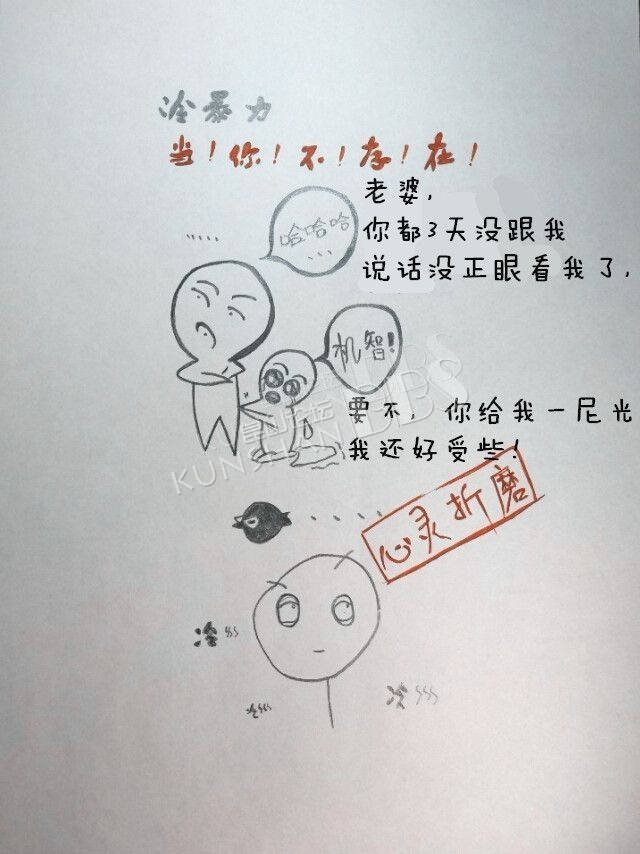 冷暴力
当！你！不！存！在！
老婆，
你都3天没跟我
说话没正眼看我了，
.....
哈哈哈
...
机智！
要不，你给我一尼光
我还好受些！
KUNSHAN BBS
心灵折磨
冷
冷
冷